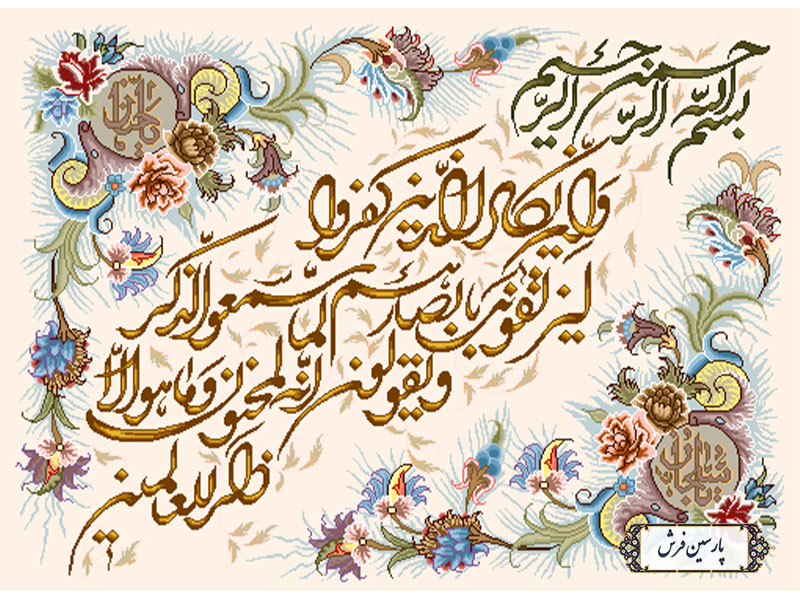 بسم الله الرحمن الرحیم
وإن یکاد الذین کفروا
لیزلقونک بابصارهم لما سمعوا الذکر
ویقولون إنه لمجنون وما هو إلا
ذکر للعالمین
پارسین فرش